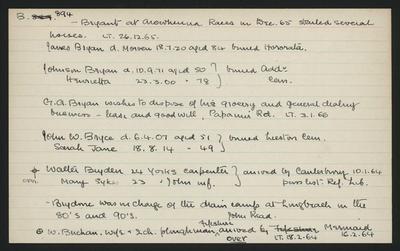 B. 894
- Bryant at Arowhenua Races in Dec. 65 sealed several
horses. LT. 26.12.65.
James Bryan d. Morven 18.7.20 aged 84 buried Hororata.
Johnson Bryan d. 10.9.71 aged 50 } buried Add.
Henrietta 23.3.00 . 78 } Cem.
G.A. Bryan wishes to dispose of his grocery and general dealing
business - lease and goodwill, Papanui Rd. LT. 3.1.60
John W. Bryce d. 6.4.07 aged 51 } buried Leeston Cem.
Sarah Jane 18.8.14 - 49 }
Walter Bryden 24 Yorks carpenter } arrived by Canterbury 10.1.64
Mary Syke 23 + John inf. } pass list. Ref. Lib.
- Brydone was in charge of the drain camp at in the
80's and 90's. John Read.
W. Buchan, wife + 2ch. ploughman, arrived by Mermaid
over LT. 18.2.64 16.2.64